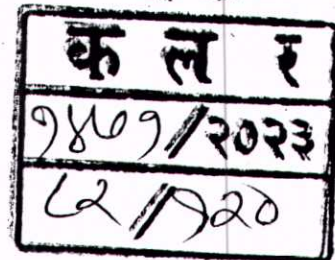 क ल र
१४७१/२०२३
८२/१२०